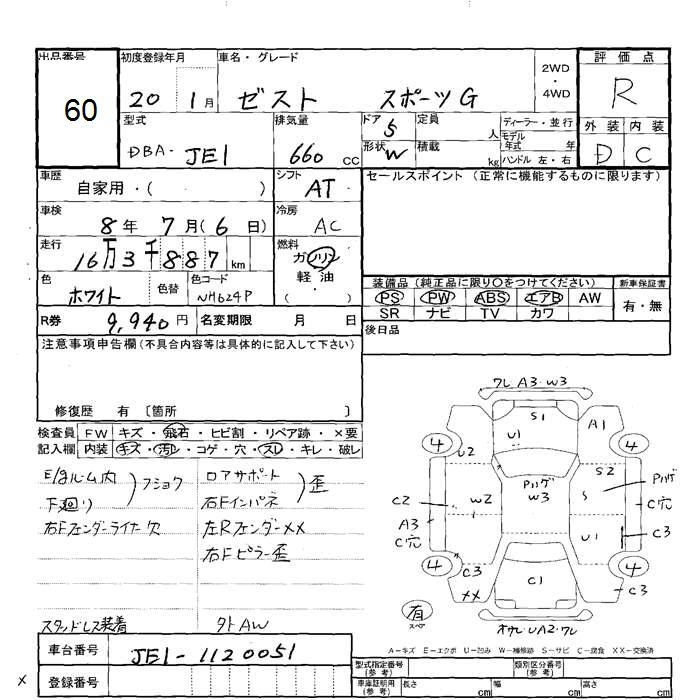 出品番号
60
初度登録年月
20 1月
車名・グレード
ゼスト スポーツG
2WD
・
4WD
評価点
R
外装 内装
D C
型式
DBA- JE1
排気量
660 cc
ドア 5
形状 W
定員 人
積載 kg
ディーラー・並行
モデル年式 年
ハンドル 左・右
車歴
自家用・( )
シフト
AT
セールスポイント (正常に機能するものに限ります)
車検
8年 7月(6日)
冷房
AC
走行
16万3千887km
燃料
ガソリン
軽油
( )
色
ホワイト
色替
色コード
NH624P
装備品 (純正品に限り○をつけてください)
新車保証書
PS PW ABS エアB AW
SR ナビ TV カワ
有・無
R券 9,940円
名変期限 月 日
後日品
注意事項申告欄(不具合内容等は具体的に記入して下さい)
修復歴 有 〔箇所 〕
検査員記入欄
FW キズ・飛石・ヒビ割・リペア跡・×要
内装 キズ・汚レ・コゲ・穴・スレ・キレ・破レ
E/gルーム内
下廻り
フショク
右Fフェンダーライナー欠
ロアサポート
右Fインパネ
歪
左Rフェンダー××
右Fピラー歪
スタッドレス装着
外AW
ワレ A3・W3
S1
A1
4
4
U1
U2
S2
Pハゲ
W3
Pハゲ
C2
W2
S
C穴
A3
C穴
U1
C3
4
4
C3
××
C1
C3
有
スペア
オサレ・UA2・ワレ
A-キズ E-エクボ U-凹み W-補修跡 S-サビ C-腐食 XX-交換済
車台番号
JE1-1120051
×
登録番号
型式指定番号(参考)
類別区分番号(参考)
車庫証明用(参考)
長さ cm
幅 cm
高さ cm